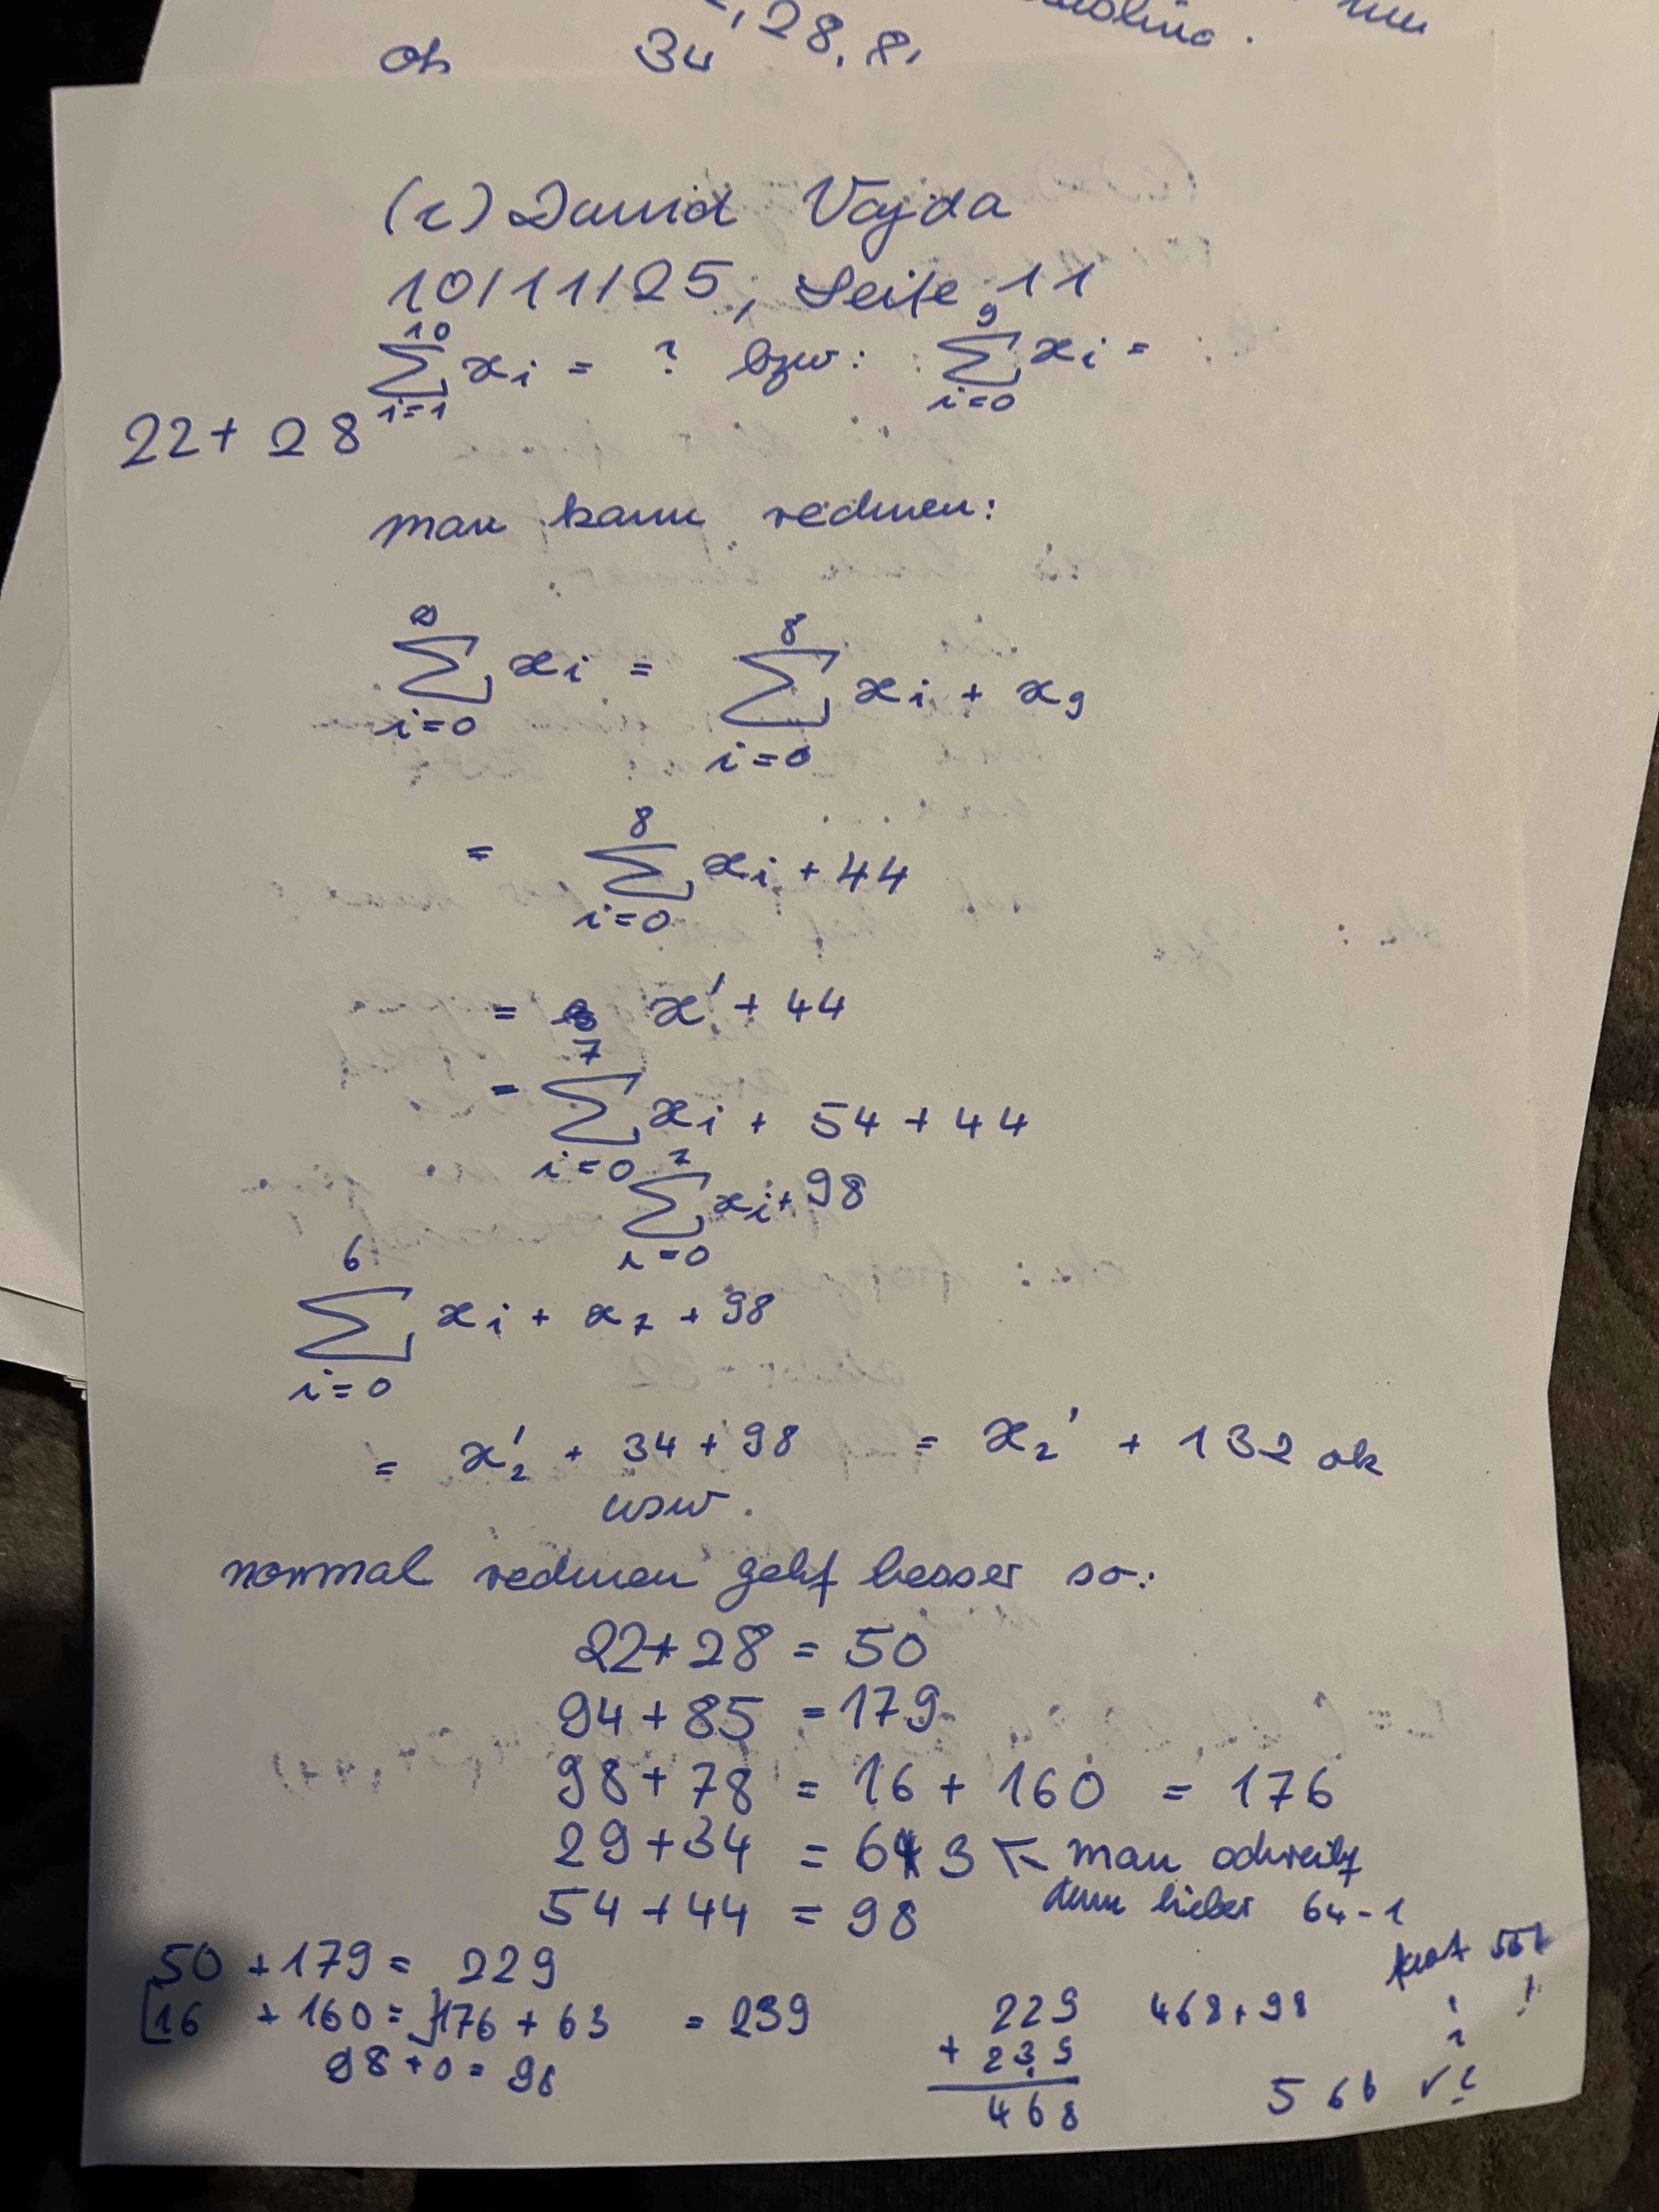 34, 28, 8,
(c) David Vajda
10/11/25, Seite 11
10 ∑ i=1 xi = ? bzw: 9 ∑ i=0 xi =
22+28
man kann rechnen:
9 ∑ i=0 xi = 8 ∑ i=0 xi + x9
= 8 ∑ i=0 xi + 44
= x' + 44
= 7 ∑ i=0 xi + 54 + 44
7 ∑ i=0 xi + 98
6 ∑ i=0 xi + x7 + 98
= x2' + 34 + 98 = x2' + 132 ok
usw.
normal rechnen geht besser so:
22+28 = 50
94+85 = 179
98+78 = 16 + 160 = 176
29+34 = 63 ← man schreibt
dann lieber 64-1
54+44 = 98
50 +179 = 229
[16 + 160 = ]176 + 63 = 239
98+0 = 98
229
+ 239
468
468+98
566